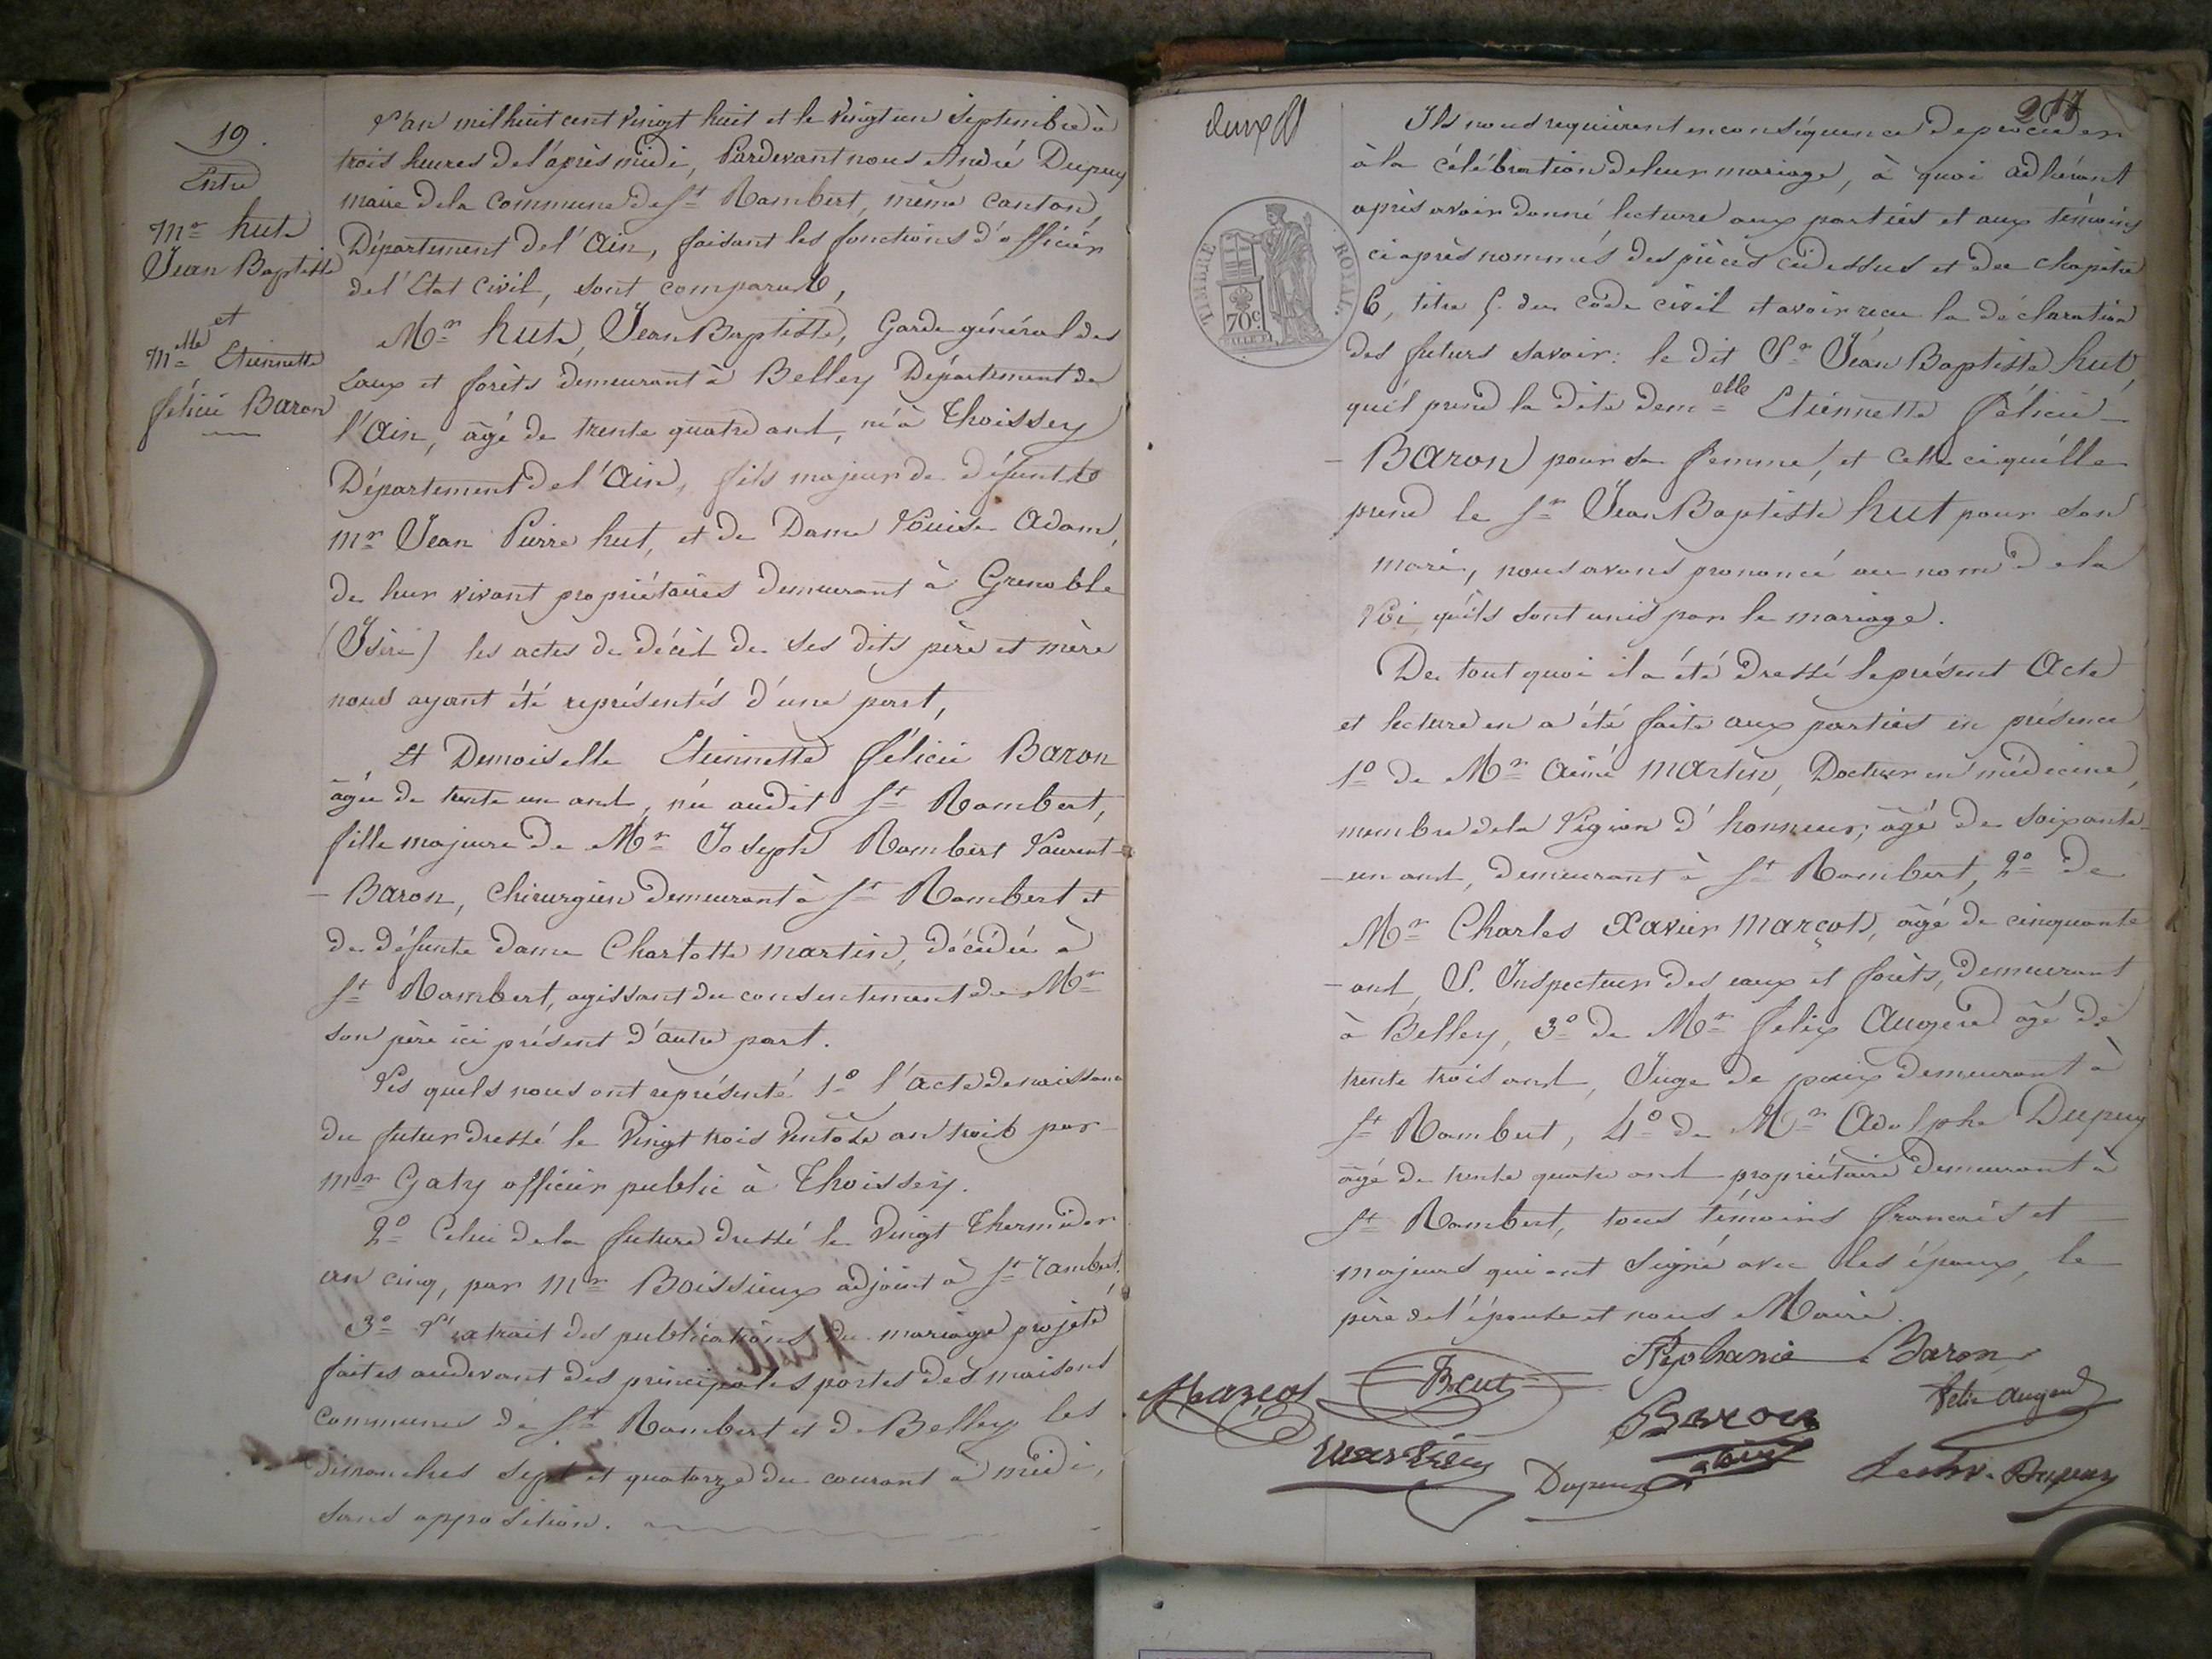 19.
Entre
Mr hut
Jean Baptiste
et
Melle Etiennette
félicie Baron
L'an mil huit cent vingt huit et le vingt un Septembre à
trois heures de l'après midi, Pardevant nous André Dupuy
maire de la commune de St Rambert, même canton,
Département de l'Ain, faisant les fonctions d'officier
de l'Etat civil, sont comparus,
Mr hut, Jean Baptiste, Garde général des
eaux et forêts demeurant à Belley Département de
l'Ain, âgé de trente quatre ans, né à Thoissey
Département de l'Ain, fils majeur de défunts
mr Jean Pierre hut, et de Dame Louise Adam,
de leur vivant propriétaires demeurant à Grenoble
(Isère) les actes de décès de ses dits père et mère
nous ayant été représentés d'une part,
Et Demoiselle Etiennette félicie Baron
âgée de trente un ans, née audit St Rambert,
fille majeure de Mr Joseph Rambert Laurent
- Baron, chirurgien demeurant à St Rambert et
de défunte dame Charlotte Martin, décédée à
St Rambert, agissant du consentement de Mr
son père ici présent d'autre part.
Les quels nous ont représenté 1º l'acte de naissance
du futur dressé le vingt trois ventose an trois par
mr Gaty officier public à Thoissey.
2º Celui de la future dressé le vingt Thermidor
an cinq, par Mr Boissieux adjoint à St rambert,
3º L'extrait des publications du mariage projeté
faites audevant des principales portes des maisons
communes de St Rambert et de Belley les
dimanches sept et quatorze du courant à midi,
sans opposition.
217
deux ff
TIMBRE ROYAL
70c
Ils nous requièrent en conséquence de procéder
à la célébration de leur mariage, à quoi adhérant
après avoir donné lecture aux parties et aux témoins
ci après nommés des pièces ci dessus et du chapitre
6, titre 5 du code civil et avoir recu la déclaration
des futurs savoir: le dit Sr Jean Baptiste hut,
qu'il prend la dite demelle Etiennette félicie
- Baron pour sa femme, et celle ci qu'elle
prend le Sr Jean Baptiste hut pour son
mari, nous avons prononcé au nom de la
Loi qu'ils sont unis par le mariage.
De tout quoi il a été dressé le présent Acte
et lecture en a été faite aux parties en présence
1º de Mr Aimé Martin, Docteur en médecine,
membre de la Légion d'honneur, âgé de soixante
- un ans, demeurant à St Rambert, 2º de
Mr Charles Xavier Marçot, âgé de cinquante
- ans, S. Inspecteur des eaux et forêts, demeurant
à Belley, 3º de Mr félix Augerd âgé de
trente trois ans, Juge de paix demeurant à
St Rambert, 4º de Mr Adolphe Dupuy
âgé de trente quatre ans propriétaire demeurant à
St Rambert, tous témoins français et
majeurs qui ont signé avec les époux, le
père de l'épouse et nous Maire.
Baron
Marçot
félix Augerd
Baron
Martin
Dupuy
Dupuy